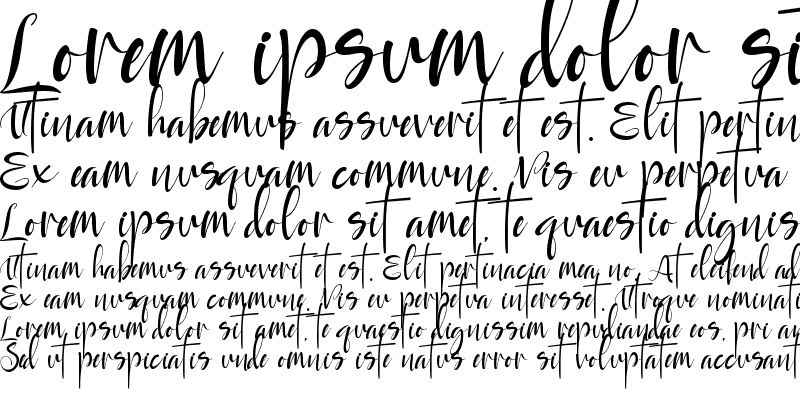 Lorem ipsum dolor si
Utinam habemus assueverit et est. Elit pertin
Ex eam nusquam commune. Vis eu perpetua
Lorem ipsum dolor sit amet, te quaestio dignis
Utinam habemus assueverit et est. Elit pertinacia mea no. At eleifend ad
Ex eam nusquam commune. Vis eu perpetua interesset. Utroque nominati
Lorem ipsum dolor sit amet, te quaestio dignissim repudiandae eos, pri an
Sed ut perspiciatis unde omnis iste natus error sit voluptatem accusant